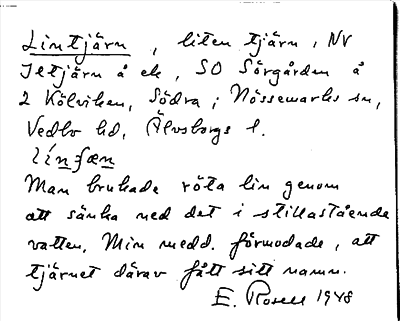 Lintjärn, liten tjärn, NV
Iltjärn å ek, SO Sörgården å
2 Kölviken, Södra; Nössemarks sn,
Vedbo hd, Älvsborgs l.
Man brukade röta lin genom
att sänka ned det i stillastående
vatten. Min medd. förmodade, att
tjärnet därav fått sitt namn.
E. Rosell 1948